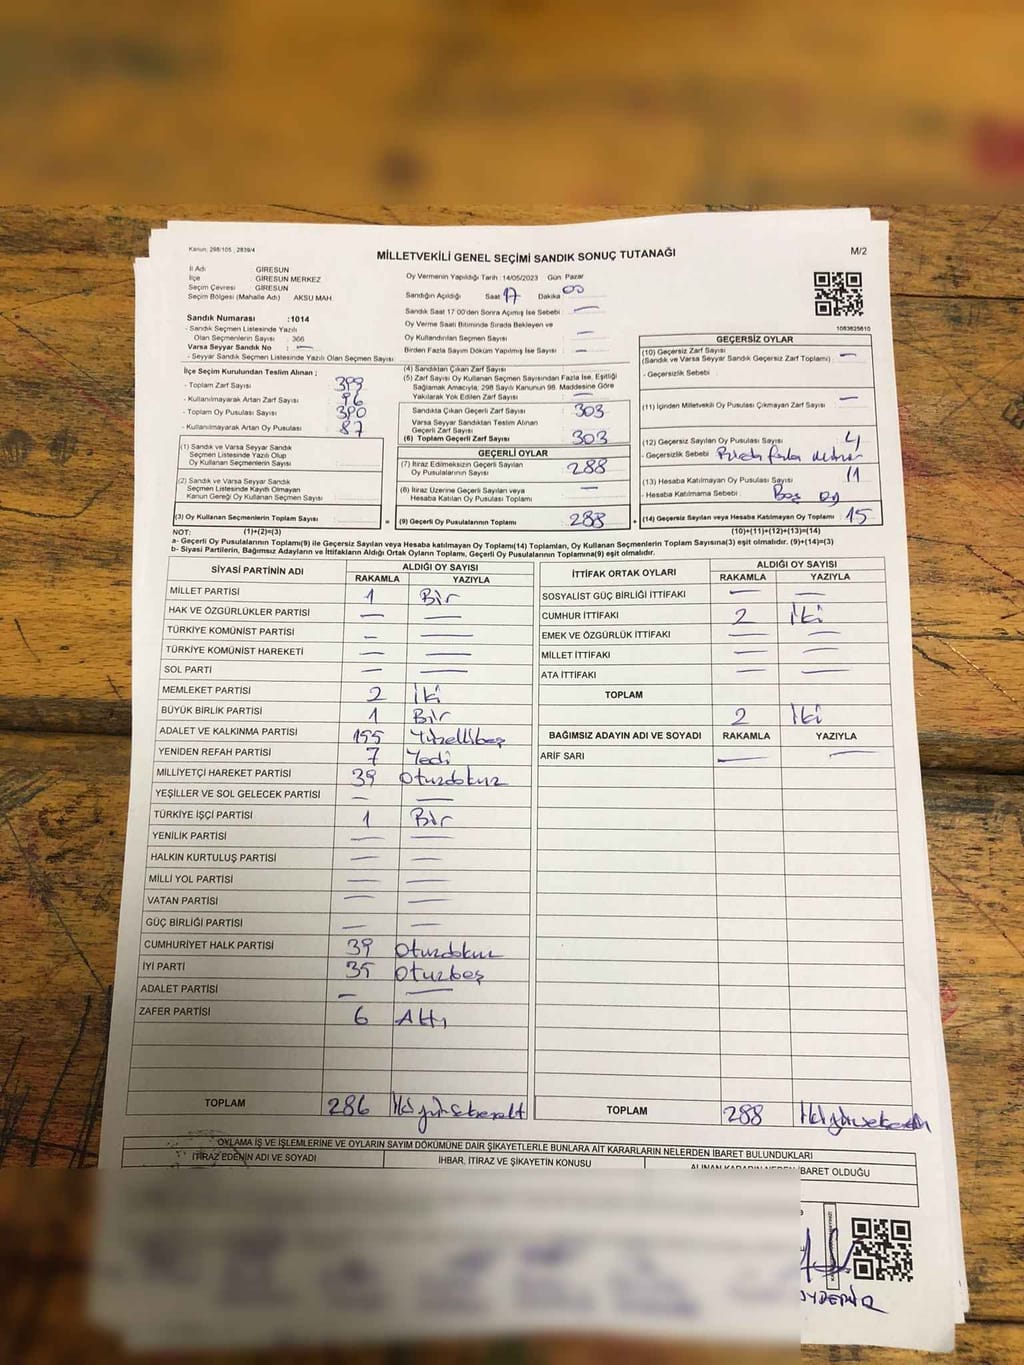 Kanun: 298/105 , 2839/4
MİLLETVEKİLİ GENEL SEÇİMİ SANDIK SONUÇ TUTANAĞI
M/2
İl Adı : GİRESUN
İlçe GİRESUN MERKEZ
Seçim Çevresi : GİRESUN
Seçim Bölgesi (Mahalle Adı) AKSU MAH.
Oy Vermenin Yapıldığı Tarih : 14/05/2023 Gün Pazar
Sandığın Açıldığı Saat 17 Dakika 00
Sandık Saat 17 00'den Sonra Açımış Ise Sebebi : —
Oy Verme Saati Bitiminde Sırada Bekleyen ve
Oy Kullandırılan Seçmen Sayısı —
Birden Fazla Sayım Döküm Yapılmış İse Sayısı —
Sandık Numarası :1014
- Sandık Seçmen Listesinde Yazılı
Olan Seçmenlerin Sayısı : 366
Varsa Seyyar Sandık No : —
- Seyyar Sandık Seçmen Listesinde Yazılı Olan Seçmen Sayısı
1083625610
İlçe Seçim Kurulundan Teslim Alınan ;
- Toplam Zarf Sayısı 399
- Kullanılmayarak Artan Zarf Sayısı 96
- Toplam Oy Pusulası Sayısı 390
- Kullanılmayarak Artan Oy Pusulası 87
(1) Sandık ve Varsa Seyyar Sandık
Seçmen Listesinde Yazılı Olup
Oy Kullanan Seçmenlerin Sayısı
(2) Sandık ve Varsa Seyyar Sandık
Seçmen Listesinde Kayıtlı Olmayan
Kanun Gereği Oy Kullanan Seçmen Sayısı
(3) Oy Kullanan Seçmenlerin Toplam Sayısı
(1)+(2)=(3)
(4) Sandıktan Çıkan Zarf Sayısı
(5) Zarf Sayısı Oy Kullanan Seçmen Sayısından Fazla İse, Eşitliği
Sağlamak Amacıyla; 298 Sayılı Kanunun 98. Maddesine Göre
Yakılarak Yok Edilen Zarf Sayısı —
Sandıkta Çıkan Geçerli Zarf Sayısı 303
Varsa Seyyar Sandıktan Teslim Alınan
Geçerli Zarf Sayısı
(6) Toplam Geçerli Zarf Sayısı 303
GEÇERLİ OYLAR
(7) İtiraz Edilmeksizin Geçerli Sayılan
Oy Pusulalarının Sayısı 288
(8) İtiraz Üzerine Geçerli Sayılan veya
Hesaba Katılan Oy Pusulası Toplamı —
= (9) Geçerli Oy Pusulalarının Toplamı 288
GEÇERSİZ OYLAR
(10) Geçersiz Zarf Sayısı
(Sandık ve Varsa Seyyar Sandık Geçersiz Zarf Toplamı) —
- Geçersizlik Sebebi
(11) İçinden Milletvekili Oy Pusulası Çıkmayan Zarf Sayısı —
(12) Geçersiz Sayılan Oy Pusulası Sayısı 4
- Geçersizlik Sebebi Birden fazla
(13) Hesaba Katılmayan Oy Pusulası Sayısı 11
- Hesaba Katılmama Sebebi Boş oy
+ (14) Geçersiz Sayılan veya Hesaba Katılmayan Oy Toplamı 15
(10)+(11)+(12)+(13)=(14)
NOT:
a- Geçerli Oy Pusulalarının Toplamı(9) ile Geçersiz Sayılan veya Hesaba Katılmayan Oy Toplamı(14) Toplamları, Oy Kullanan Seçmenlerin Toplam Sayısına(3) eşit olmalıdır. (9)+(14)=(3)
b- Siyasi Partilerin, Bağımsız Adayların ve İttifakların Aldığı Ortak Oyların Toplamı, Geçerli Oy Pusulalarının Toplamına(9) eşit olmalıdır.
SİYASİ PARTİNİN ADI ALDIĞI OY SAYISI
RAKAMLA YAZIYLA
MİLLET PARTİSİ 1 Bir
HAK VE ÖZGÜRLÜKLER PARTİSİ — —
TÜRKİYE KOMÜNİST PARTİSİ — —
TÜRKİYE KOMÜNİST HAREKETİ — —
SOL PARTİ — —
MEMLEKET PARTİSİ 2 İki
BÜYÜK BİRLİK PARTİSİ 1 Bir
ADALET VE KALKINMA PARTİSİ 155 Yüzellibeş
YENİDEN REFAH PARTİSİ 7 Yedi
MİLLİYETÇİ HAREKET PARTİSİ 39 Otuzdokuz
YEŞİLLER VE SOL GELECEK PARTİSİ — —
TÜRKİYE İŞÇİ PARTİSİ 1 Bir
YENİLİK PARTİSİ — —
HALKIN KURTULUŞ PARTİSİ — —
MİLLİ YOL PARTİSİ — —
VATAN PARTİSİ — —
GÜÇ BİRLİĞİ PARTİSİ — —
CUMHURİYET HALK PARTİSİ 39 Otuzdokuz
İYİ PARTİ 35 Otuzbeş
ADALET PARTİSİ — —
ZAFER PARTİSİ 6 Altı
TOPLAM 286
İTTİFAK ORTAK OYLARI ALDIĞI OY SAYISI
RAKAMLA YAZIYLA
SOSYALİST GÜÇ BİRLİĞİ İTTİFAKI — —
CUMHUR İTTİFAKI 2 İki
EMEK VE ÖZGÜRLÜK İTTİFAKI — —
MİLLET İTTİFAKI — —
ATA İTTİFAKI — —
TOPLAM
2 İki
BAĞIMSIZ ADAYIN ADI VE SOYADI RAKAMLA YAZIYLA
ARİF SARI — —
TOPLAM 288
OYLAMA İŞ VE İŞLEMLERİNE VE OYLARIN SAYIM DÖKÜMÜNE DAİR ŞİKAYETLERLE BUNLARA AİT KARARLARIN NELERDEN İBARET BULUNDUKLARI
İTİRAZ EDENİN ADI VE SOYADI İHBAR, İTİRAZ VE ŞİKAYETİN KONUSU ALINAN KARARIN NEDEN İBARET OLDUĞU